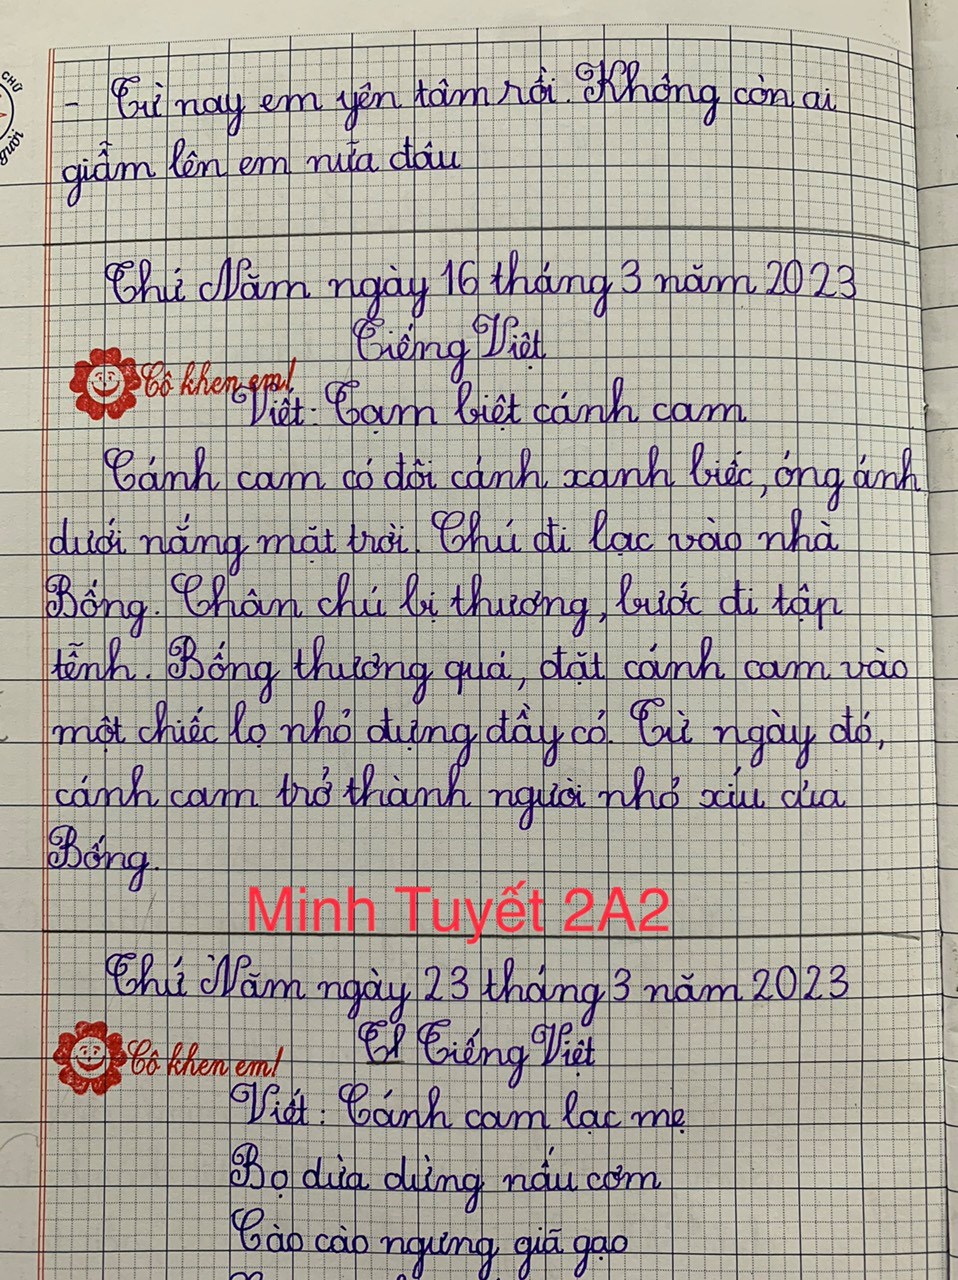 CHỮ
gười
- Từ nay em yên tâm rồi. Không còn ai
giẫm lên em nữa đâu
Thứ Năm ngày 16 tháng 3 năm 2023
Tiếng Việt
Cô khen em!
Viết: Tạm biệt cánh cam
Cánh cam có đôi cánh xanh biếc, óng ánh
dưới nắng mặt trời. Chú đi lạc vào nhà
Bống. Chân chú bị thương, bước đi tập
tễnh. Bống thương quá, đặt cánh cam vào
một chiếc lọ nhỏ đựng đầy cỏ. Từ ngày đó,
cánh cam trở thành người nhỏ xíu của
Bống.
Minh Tuyết 2A2
Thứ Năm ngày 23 tháng 3 năm 2023
Tiếng Việt
Cô khen em!
Viết: Cánh cam lạc mẹ
Bọ dừa dừng nấu cơm
Cào cào ngưng giã gạo